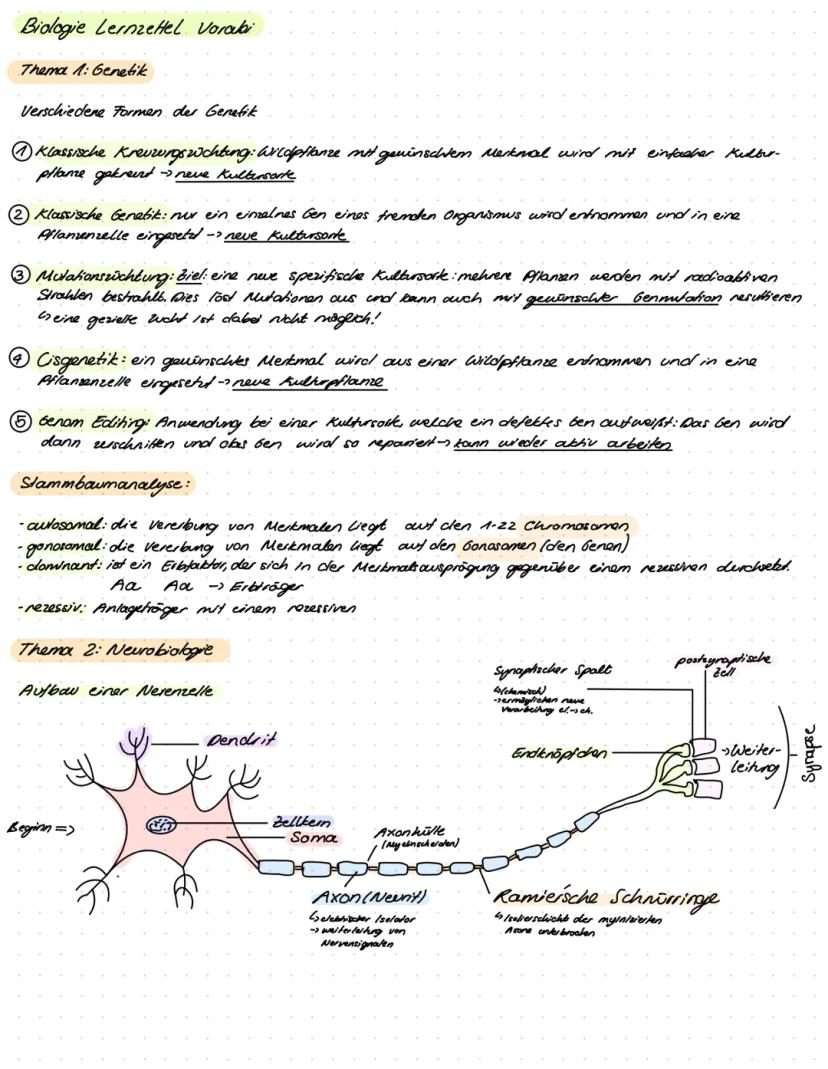 Biologie Lernzettel Vorabi
Thema 1: Genetik
Verschiedene Formen der Genetik
① Klassische Kreuzungszüchtung: Wildpflanze mit gewünschtem Merkmal wird mit einfacher Kultur-
pflanze gekreuzt → neue Kultursorte
② Klassische Genetik: nur ein einzelnes Gen eines fremden Organismus wird entnommen und in eine
Pflanzenzelle eingesetzt → neue Kultursorte
③ Mutationszüchtung: Ziel: eine neue spezifische Kultursorte: mehrere Pflanzen werden mit radioaktiven
Strahlen bestrahlt. Dies löst Mutationen aus und kann auch mit gewünschter Genmutation resultieren
↳ eine gezielte Zucht ist dabei nicht möglich!
④ Cisgenetik: ein gewünschtes Merkmal wird aus einer Wildpflanze entnommen und in eine
Pflanzenzelle eingesetzt → neue Kulturpflanze
⑤ Genom Editing: Anwendung bei einer Kultursorte, welche ein defektes Gen aufweißt: Das Gen wird
dann zerschnitten und das Gen wird so repariert → kann wieder aktiv arbeiten
Stammbaumanalyse:
- autosomal: die Vererbung von Merkmalen liegt auf den 1-22 Chromosomen
- gonosomal: die Vererbung von Merkmalen liegt auf den Gonosomen (den Genen)
- dominant: ist ein Erbfaktor, der sich in der Merkmalsausprägung gegenüber einem rezessiven durchsetzt.
Aa Aa → Erbträger
- rezessiv: Anlageträger mit einem rezessiven
Thema 2: Neurobiologie
Aufbau einer Nerenzelle
postsynaptische
Zell
Synaptischer Spalt
↳ (chemisch)
→ ermöglichen neue
Verarbeitung el. → ch.
Dendrit
Endknöpfchen
→ Weiter-
leitung
Synapse
Beginn =>
Zellkern
Soma
Axonhülle
(Myelinscheiden)
Axon (Neurit)
↳ elektrischer Isolator
→ weiterleitung von
Nervensignalen
Ramier'sche Schnürringe
↳ Isolierschicht der mylnisierten
Axone unterbrochen